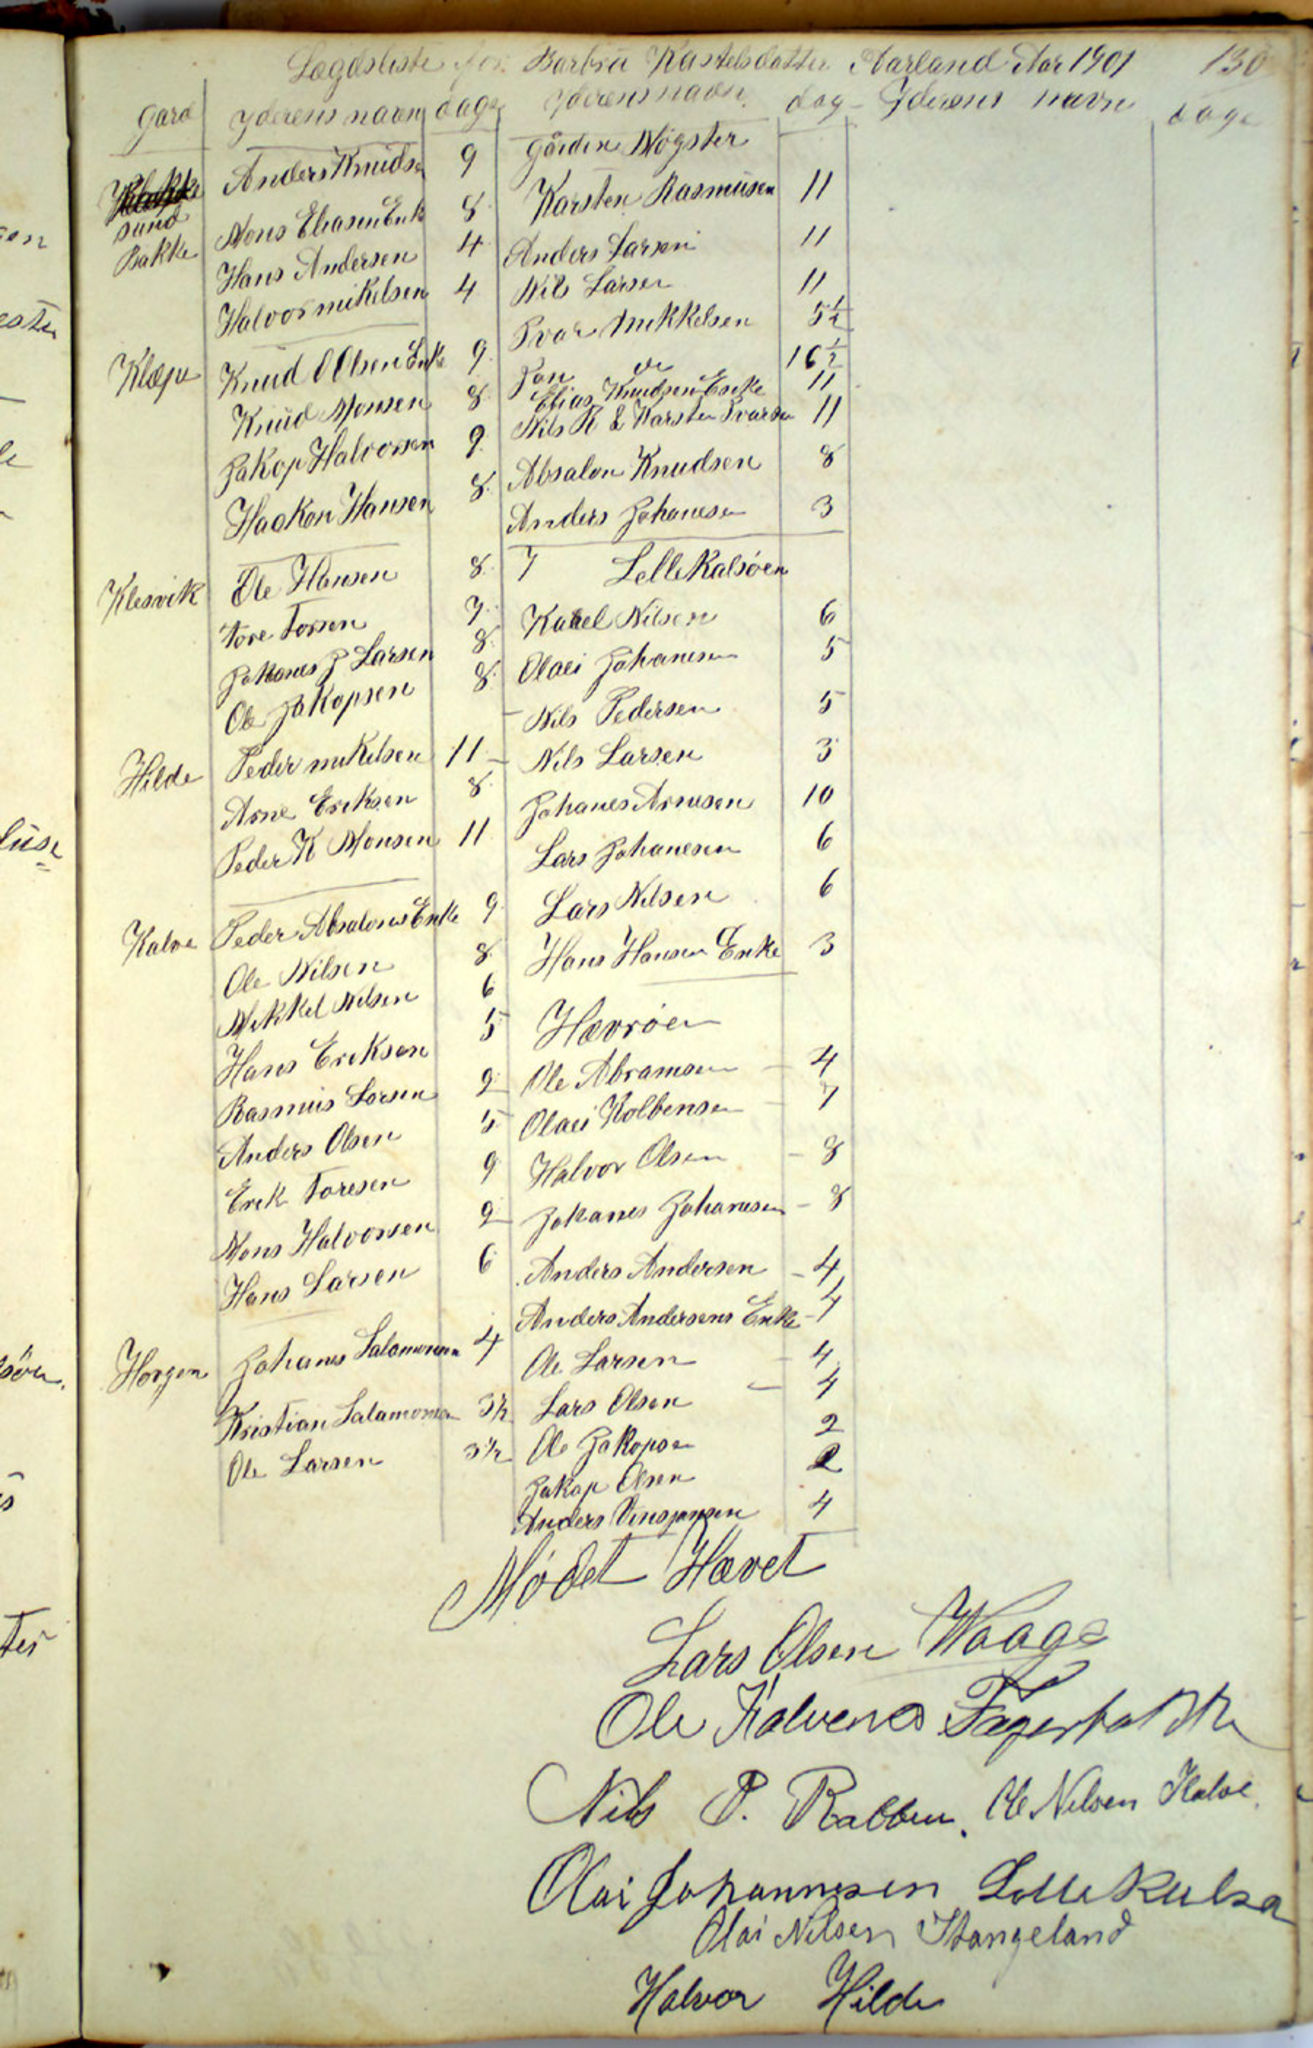 Lægdsliste for Barbra Kastelsdatter Aarland Aar 1901 130
Gard Yderens navn dage Yderens navn dag Yderens navn dage
Gården Møgster
Anders Knudsen 9
sund Mons Eliasen Enk 8 Karsten Rasmusen 11
Bakke Hans Andersen 4 Anders Larsen 11
Halvor Mikelsen 4 Nils Larsen 11
Ivar Mikkelsen 5½
Klæpe Knud O Olsen Enke 9 Jon do 16½
Knud Monsen 8 Elias Knudsen Enke 11
Jakop Halvorsen 9 Nils R & Karsten Ivarsen 11
Haakon Hansen 8 Absalon Knudsen 8
Anders Johanesen 3
Klesvik Ole Hansen 8 7 Lellekalsøen
Tore Torsen 7 Karel Nilsen 6
Johanes J Larsen 8 Olai Johanesen 5
Ole Jakopsen 8 Nils Pedersen 5
Hilde Peder Mikelsen 11 Nils Larsen 3
Arne Eriksen 8 Johanes Arnesen 10
Peder K Monsen 11 Lars Johanesen 6
Kalve Peder Absalonsen Enke 9 Lars Nilsen 6
Ole Nilsen 8 Hans Hansen Enke 3
Mikkel Nilsen 6
Hans Eriksen 5 Hævrøen
Rasmus Larsen 2 Ole Abramsen 4
Anders Olsen 5 Olai Kolbensen 7
Erik Toresen 9 Halvor Olsen 8
Mons Halvorsen 2 Johanes Johanesen 8
Hans Larsen 6 Anders Andersen 4
Anders Andersens Enke 4
Horgen Johanes Salamonsen 4 Ole Larsen 4
Kristian Salamonsen 3½ Lars Olsen 4
Ole Larsen 3½ Ole Jakopsen 2
Jakop Olsen 2
Anders Vinsjansen 4
Mødet Hævet
Lars Olsen Waage
Ole Kalvenes Fagerbakke
Nils P. Rabben. Ole Nilsen Kalve.
Olai Johannesen Lellekalsø
Olai Nilsen Stangeland
Halvor Hilde